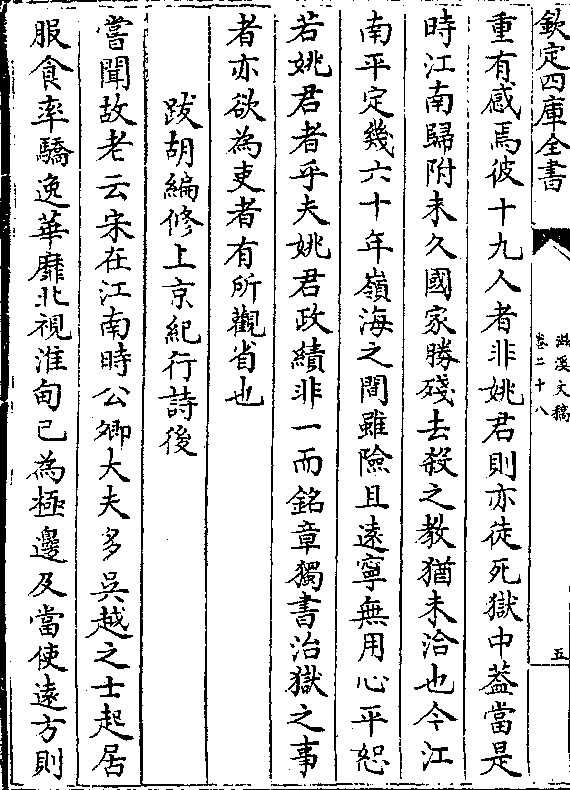 欽定四庫全書
滋溪文稿
卷二十八
五
重有感焉彼十九人者非姚君則亦徒死獄中葢當是
時江南歸附未久國家勝殘去殺之教猶未洽也今江
南平定幾六十年嶺海之間雖險且遠寧無用心平恕
若姚君者乎夫姚君政績非一而銘章獨書治獄之事
者亦欲為吏者有所觀省也
跋胡編修上京紀行詩後
嘗聞故老云宋在江南時公卿大夫多吳越之士起居
服食率驕逸華靡北視淮甸已為極邊及當使遠方則